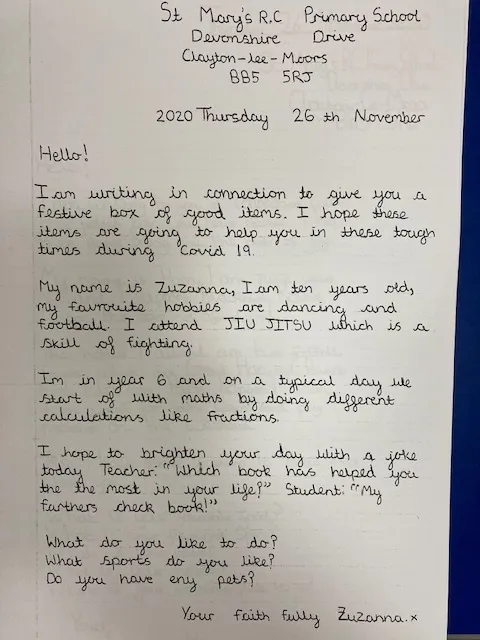 St Mary's R.C Primary School
Devonshire Drive
Clayton-lee-Moors
BB5 5RJ
2020 Thursday 26th November
Hello!
I am writing in connection to give you a
festive box of good items. I hope these
items are going to help you in these tough
times during Covid 19.
My name is Zuzanna, I am ten years old,
my favrouite hobbies are dancing and
football. I attend JIU JITSU which is a
skill of fighting.
Im in year 6 and on a typical day we
start of with maths by doing different
calculations like fractions.
I hope to brighten your day with a joke
today Teacher: "Which book has helped you
the the most in your life?" Student: "My
farthers check book!"
What do you like to do?
What sports do you like?
Do you have eny pets?
Your faith fully Zuzanna.x